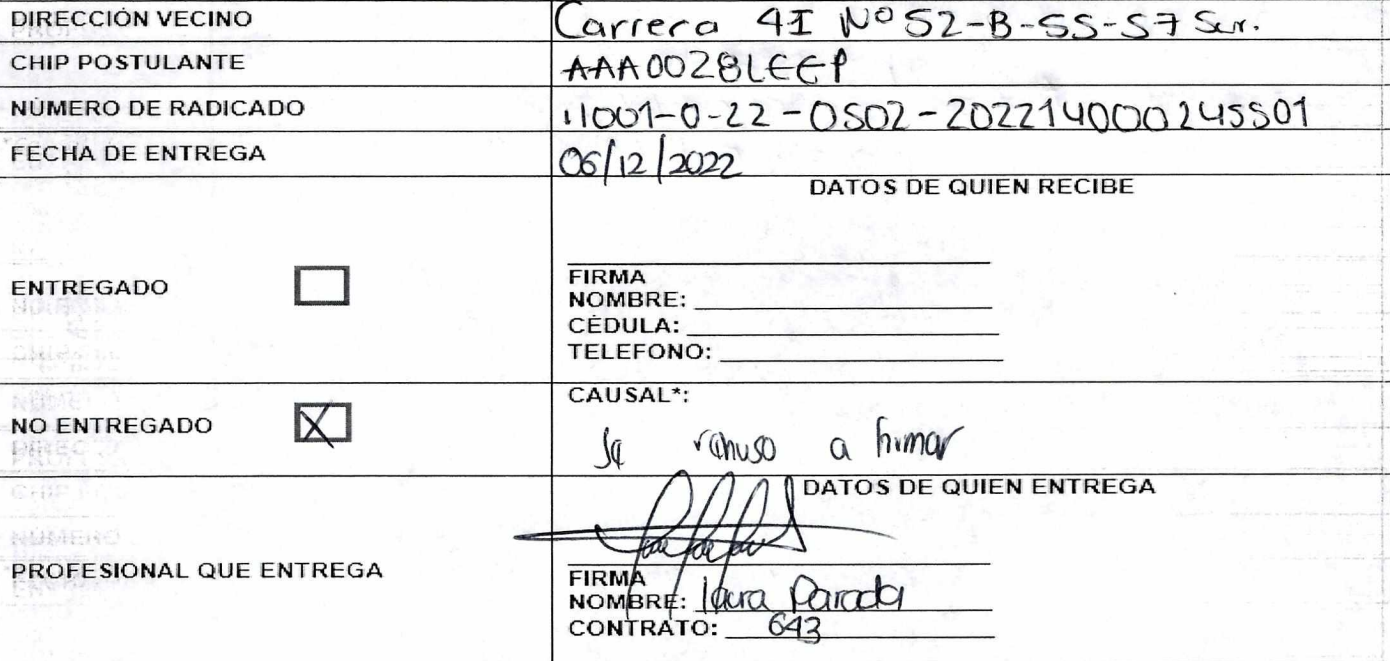 DIRECCIÓN VECINO Carrera 4I Nº 52-B-55-57 Sur.
CHIP POSTULANTE AAA0028LEEP
NÚMERO DE RADICADO 11001-0-22-0502-202214000245501
FECHA DE ENTREGA 06/12/2022
DATOS DE QUIEN RECIBE
ENTREGADO
FIRMA
NOMBRE:
CÉDULA:
TELEFONO:
NO ENTREGADO X
CAUSAL*:
Se rehuso a firmar
DATOS DE QUIEN ENTREGA
PROFESIONAL QUE ENTREGA
FIRMA
NOMBRE: Laura Parada
CONTRATO: 643